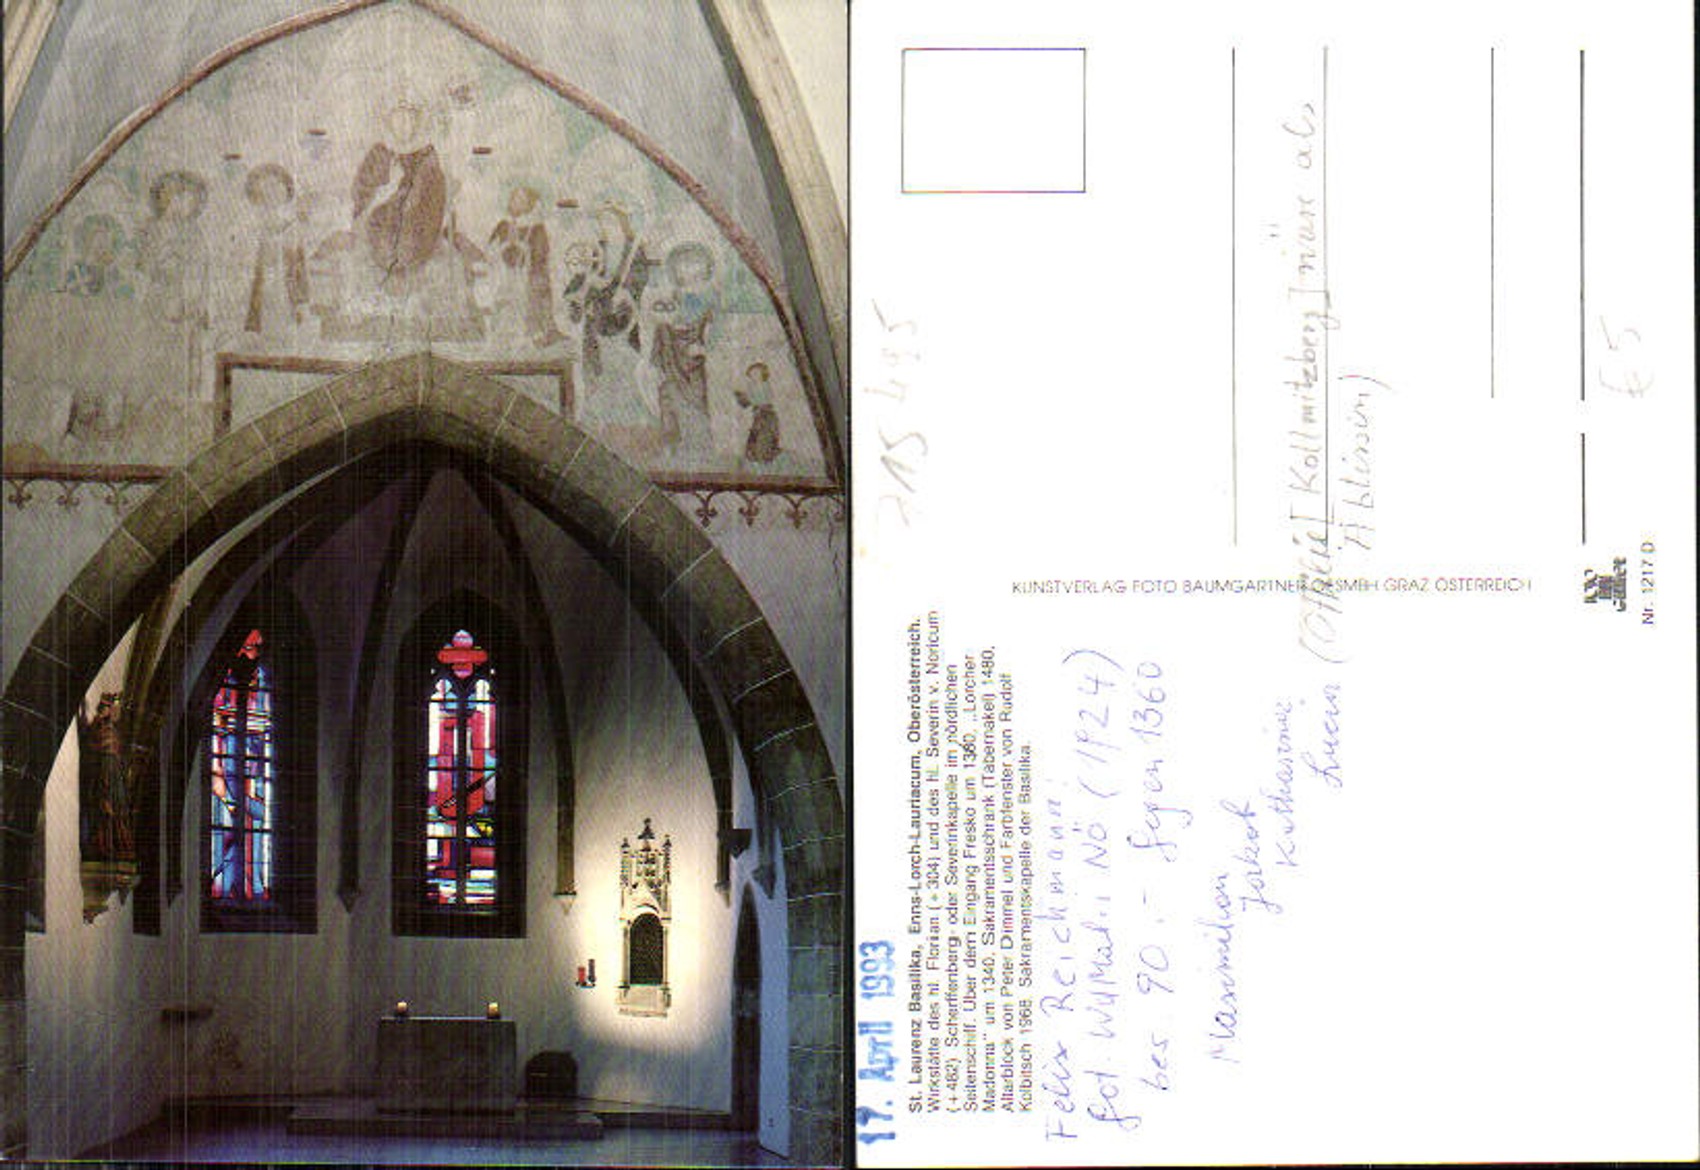 17. April 1993
St. Laurenz Basilika, Enns-Lorch-Lauriacum, Oberösterreich.
Wirkstätte des hl. Florian (+ 304) und des hl. Severin v. Noricum
(+ 482) Scherffenberg- oder Severinkapelle im nördlichen
Seitenschiff. Über dem Eingang Fresko um 1380. „Lorcher
Madonna" um 1340. Sakramentsschrank (Tabernakel) 1480.
Altarblock von Peter Dimmel und Farbfenster von Rudolf
Kolbitsch 1968. Sakramentskapelle der Basilika.
KUNSTVERLAG FOTO BAUMGARTNER GESMBH GRAZ ÖSTERREICH
Nr. 1217 D
Felix Reichmann:
Got. WdMalei NÖ (1924)
bes. 90.- Segen 1360
Maximilian
Jakob
Katharina
Lucia (Ottilie [Kollmitzberg] wäre als
Äbtissin)
715495
€ 5